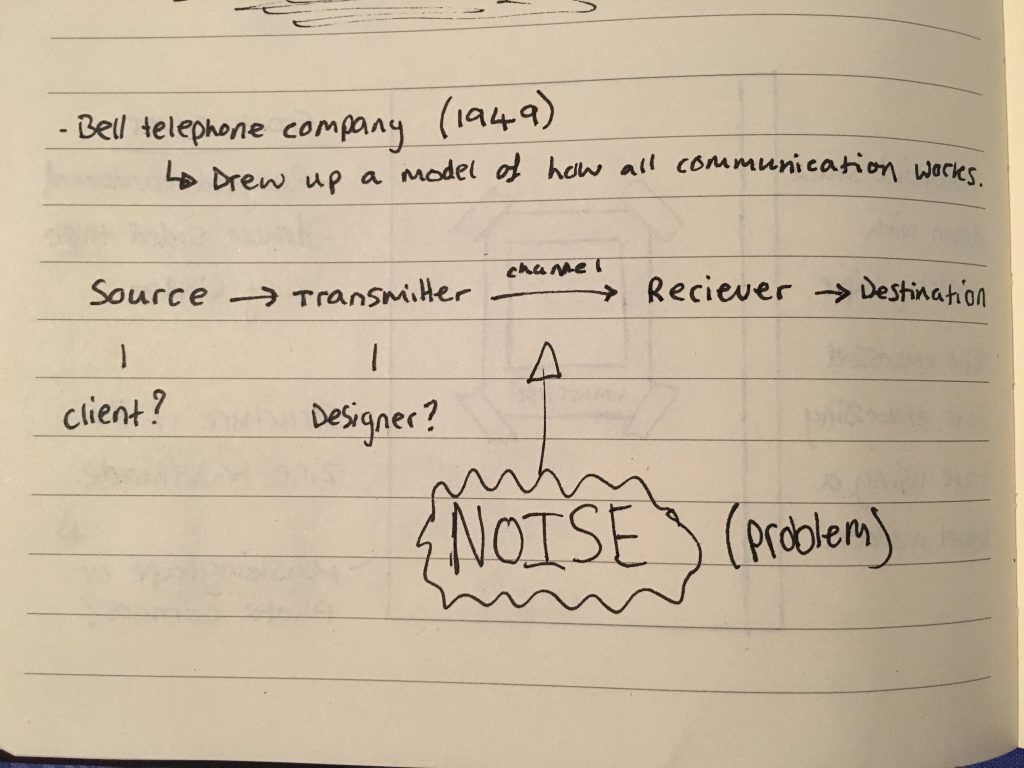 - Bell telephone company (1949)
↳ Drew up a model of how all communication works.
channel
Source → Transmitter → Reciever → Destination
client? Designer?
NOISE (problem)